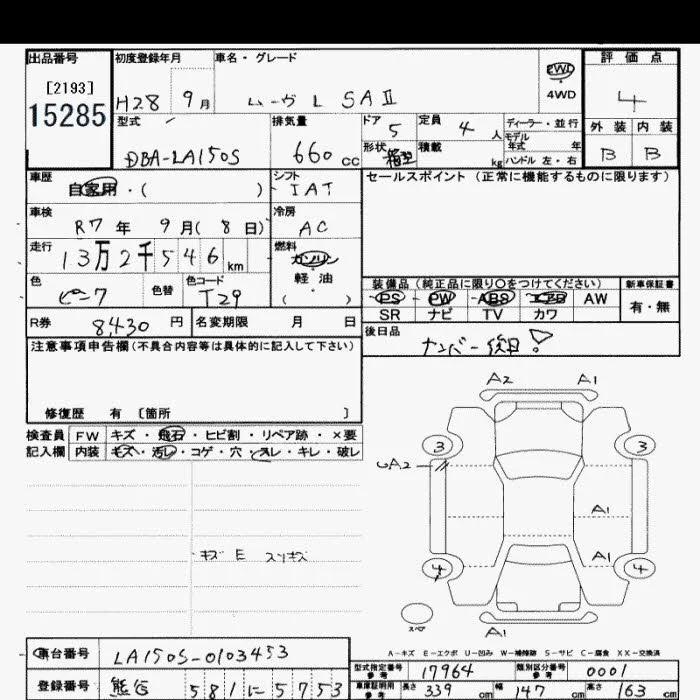 出品番号 初度登録年月 車名・グレード 評価点
[2193] 15285 H28 9月 ムーヴ L SAⅡ 2WD 4WD 4
型式 排気量 ドア 5 定員 4人 ディーラー・並行 外装 内装
DBA-LA150S 660cc 形状 箱型 積載 kg モデル年式 年 ハンドル 左・右 B B
車歴 自家用・( ) シフト IAT セールスポイント (正常に機能するものに限ります)
車検 R7年 9月(8日) 冷房 AC
走行 13万2千546km 燃料 ガソリン 軽油 ( )
色 ピンク 色替 色コード T29
装備品 (純正品に限り○をつけてください) 新車保証書
PS PW ABS エアB AW 有・無
SR ナビ TV カワ
R券 8430円 名変期限 月 日 後日品
ナンバー後日
注意事項申告欄(不具合内容等は具体的に記入して下さい)
修復歴 有 〔箇所 〕
検査員 FW キズ・飛石・ヒビ割・リペア跡・×要
記入欄 内装 キズ・汚レ・コゲ・穴・スレ・キレ・破レ
キズ E スリキズ
A2 A1
3 3
UA2
A1
A1
4 4
スペア
A1
A-キズ E-エクボ U-凹み W-補修跡 S-サビ C-腐食 XX-交換済
車台番号 LA150S-0103453
型式指定番号 参考 17964 類別区分番号 参考 0001
登録番号 熊谷 581 に 5753
車庫証明用 参考 長さ 339cm 幅 147cm 高さ 163cm